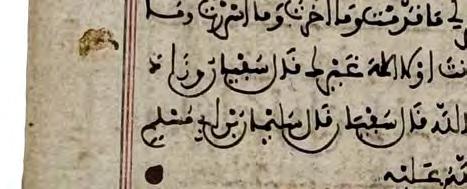 لي ما قدمت وما اخرت وما اسررت وما
نت او لا اله غيرك قال سفين وزاد
الله قال سفين قال سليمن بن ابي مسلم
عليه